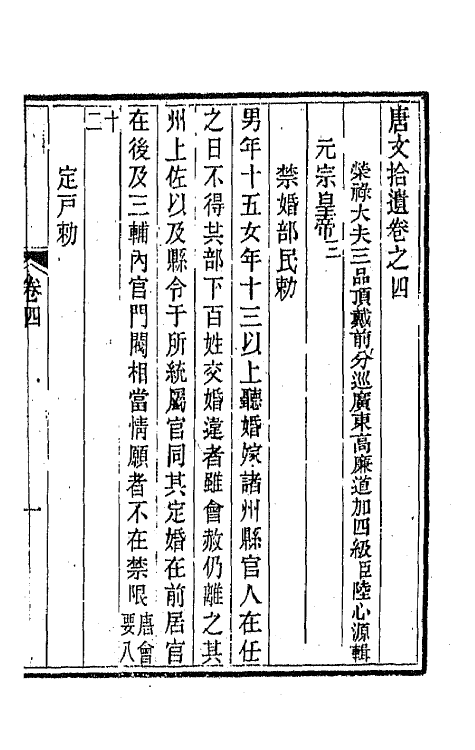 唐文拾遺卷之四
榮祿大夫三品頂戴前分巡廣東高廉道加四級臣陸心源輯
元宗皇帝三
禁婚部民勅
男年十五女年十三以上聽婚嫁諸州縣官人在任
之日不得共部下百姓交婚違者雖會赦仍離之其
州上佐以及縣令于所統屬官同其定婚在前居官
在後及三輔內官門閥相當情願者不在禁限唐會要八
十二
定戸勅
卷四
一